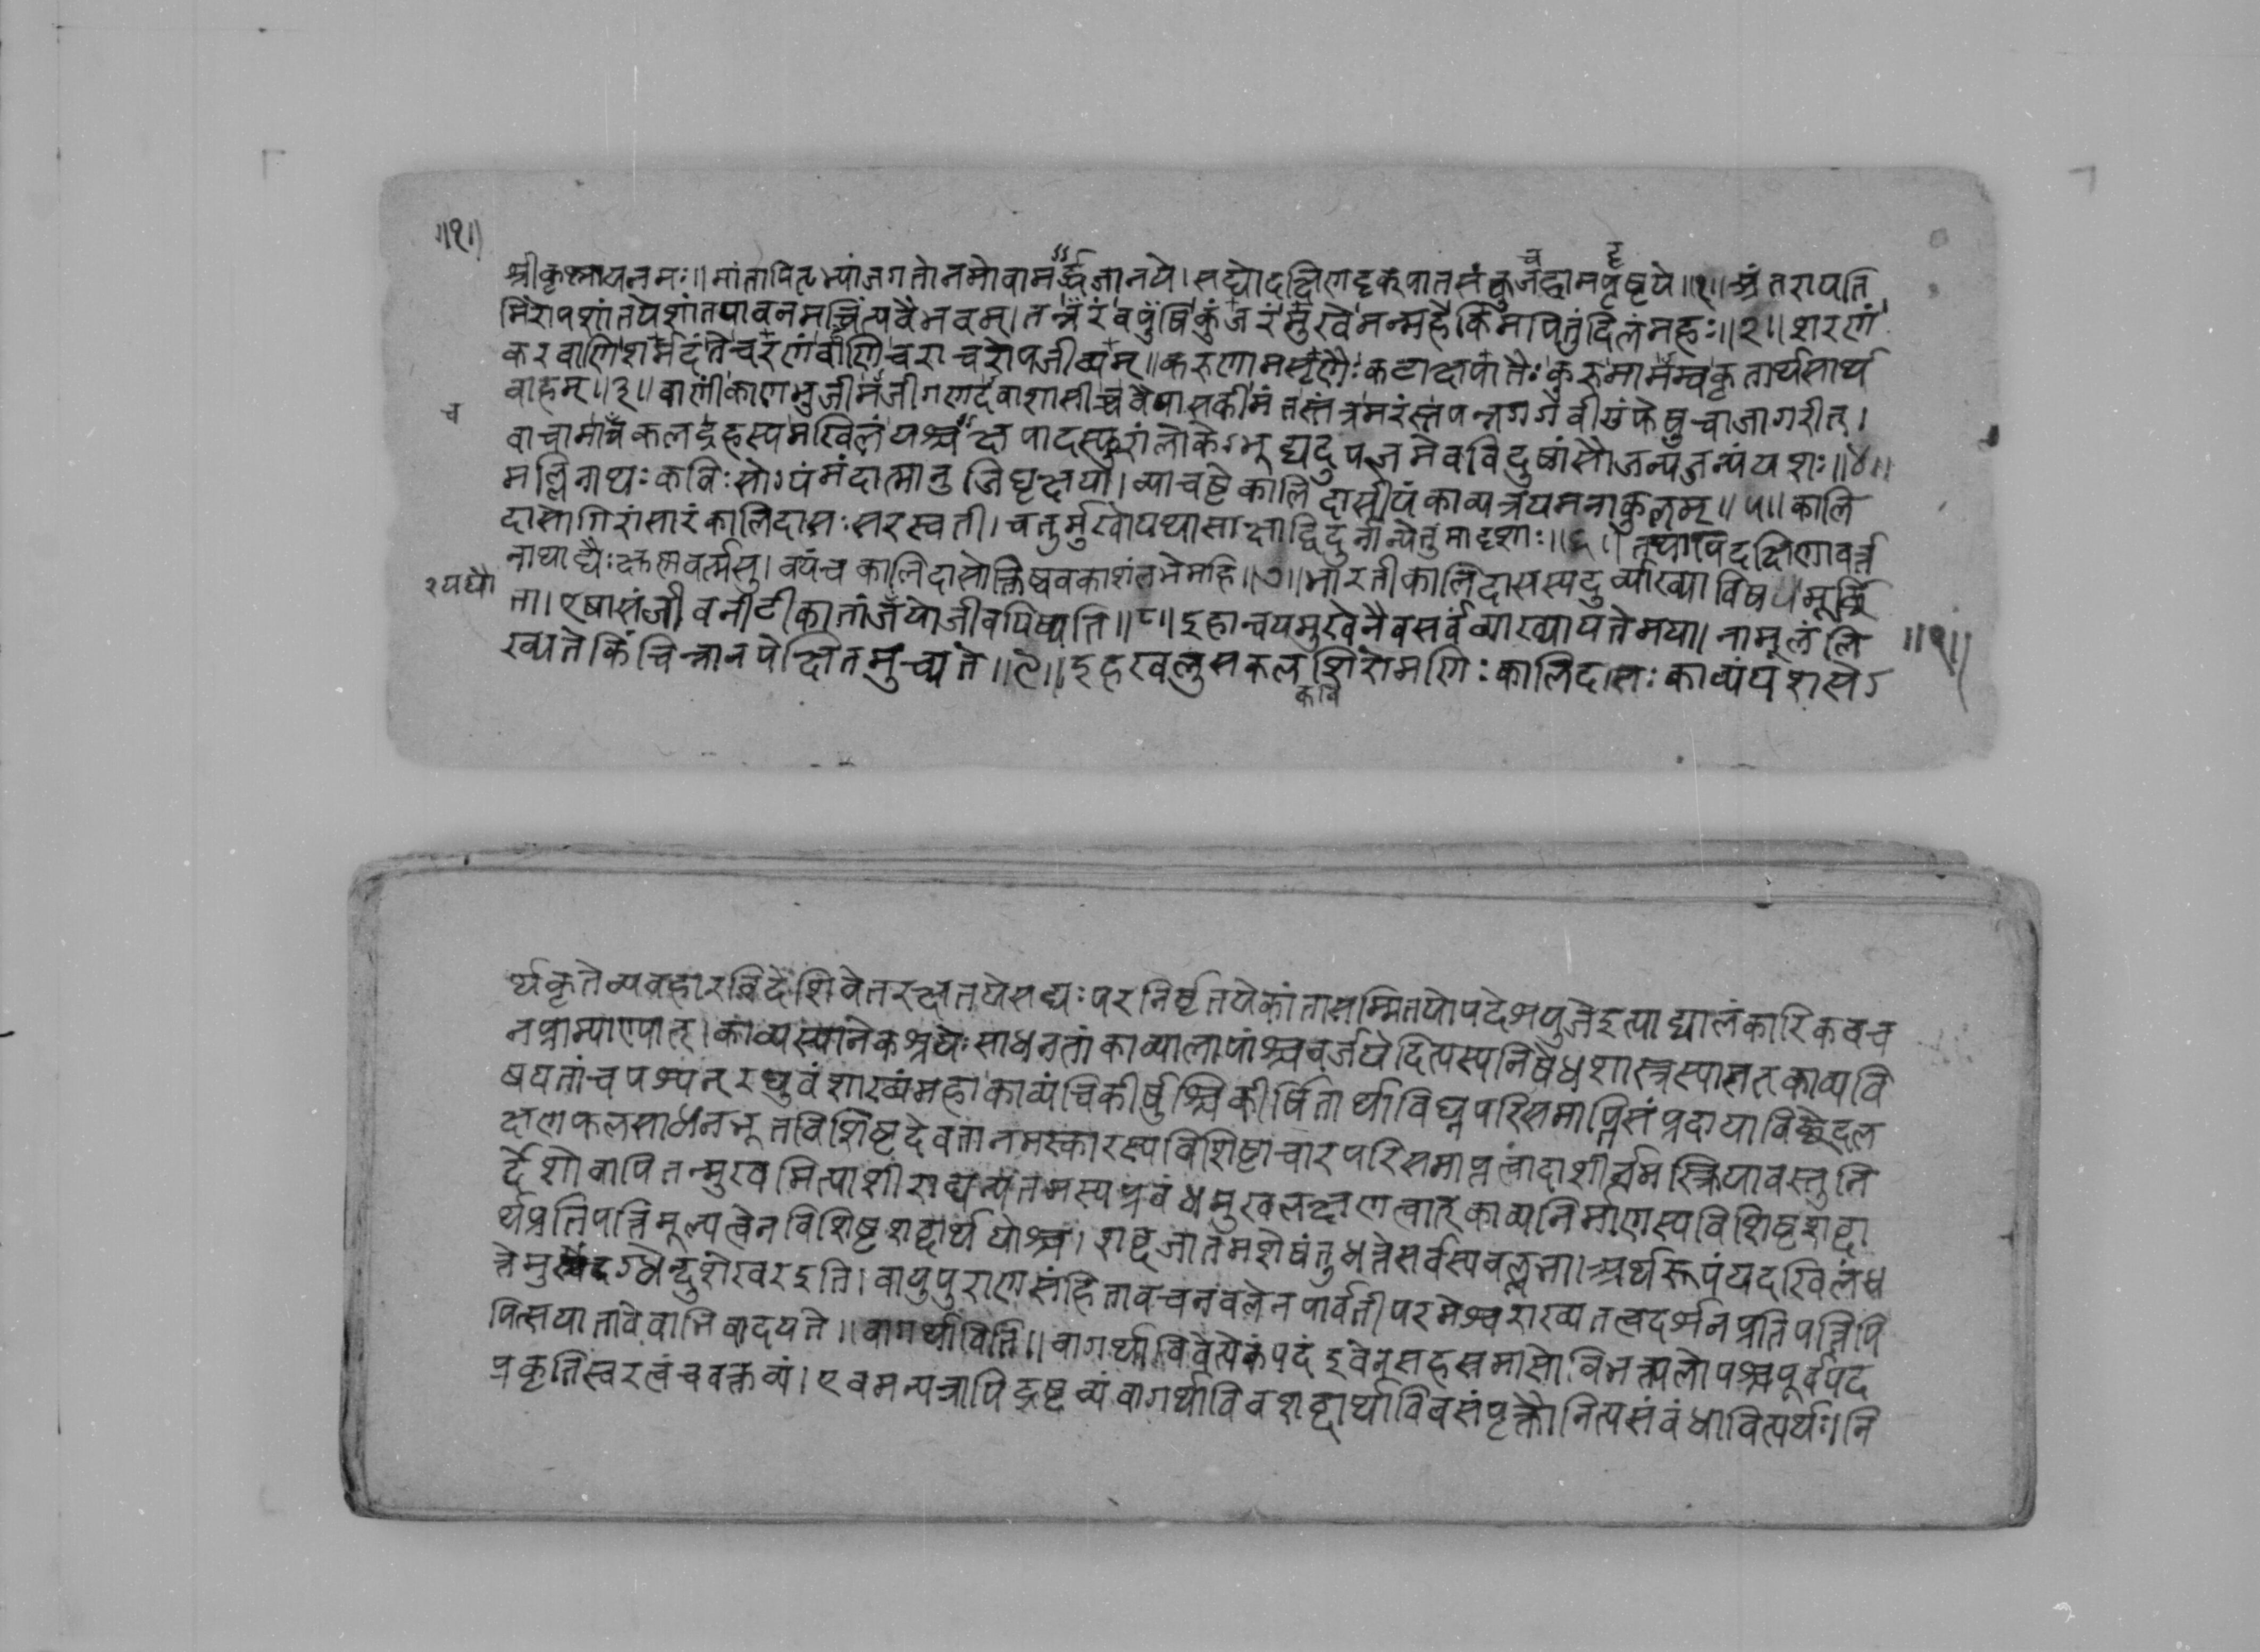 ॥१॥
श्रीकृष्णायनमः॥ मातापितृभ्यांजगतोनमोवामर्द्धजानये। सद्योदक्षिणदृक्पातसंकुचद्वामदृष्टये॥१॥ अंतरायति
मिरोपशांतयेशांतपावनमचिंत्यवैभवम्। तन्नरंवपुषिकुंजरंमुखेमन्महेकिमपितुंदिलंमहः॥२॥ शरणं
करवाणिशर्मदंतेचरणंवाणिचराचरोपजीव्यम्॥ करुणामसृणैःकटाक्षपातैःकुरुमामम्बकृतार्थसार्थ
वाहम्॥३॥ वाणींकाणभुजीमजीगणदवाशासीच्चवैयासकीमंतस्तंत्रमरंस्तपन्नगगवीगुंफेषुचाजागरीत्।
च
वाचामाचकलद्रहस्यमखिलंयश्चाक्षपादस्फुरांलोकेऽभूद्यदुपज्ञमेवविदुषांसौजन्यजन्यंयशः॥४॥
मल्लिनाथःकविःसोऽयंमंदात्मानुजिघृक्षया। व्याचष्टेकालिदासीयंकाव्यत्रयमनाकुलम्॥५॥ कालि
दासोगिरांसारंकालिदासःसरस्वती। चतुर्मुखोयथासाक्षाद्विदुर्नान्येतुमादृशाः॥६॥ तथापिदक्षिणावर्त्त
नाथाद्यैःक्षुण्णवर्त्मसु। वयंचकालिदासोक्तिष्ववकाशंलभेमहि॥७॥ भारतीकालिदासस्यदुर्व्याख्याविषमूर्छि
ता। एषासंजीवनीटीकातांजयोजीवयिष्यति॥८॥ इहान्वयमुखेनैवसर्वंव्याख्यायतेमया। नामूलंलि
॥१॥
ख्यतेकिंचिन्नानपेक्षितमुच्यते॥९॥ इहखलुसकलशिरोमणिःकालिदासःकाव्यंयशसेऽ
कवि
र्थकृतेव्यवहारविदेशिवेतरक्षतयेसद्यःपरनिर्वृतयेकांतासम्मिततयोपदेशयुजेइत्याद्यालंकारिकवच
नप्रामाण्यात्। काव्यस्यानेकश्रेयःसाधनतांकाव्यालापांश्चवर्जयेदित्यस्यनिषेधशास्त्रस्यासत्काव्यवि
षयतांचपश्यन्रघुवंशाख्यंमहाकाव्यंचिकीर्षुश्चिकीर्षितार्थाविघ्नपरिसमाप्तिसंप्रदायाविच्छेदल
क्षणफलसाधनभूतविशिष्टदेवतानमस्कारस्यविशिष्टाचारपरिसमाप्तत्वादाशीर्नमस्क्रियावस्तुनि
र्देशोवापितन्मुखमित्याशीराद्यन्यतमस्यप्रबंधमुखलक्षणत्वात्काव्यनिर्माणस्यविशिष्टशब्दा
र्थप्रतिपत्तिमूल्यत्वेनविशिष्टशब्दार्थयोश्च। शब्दजातमशेषंतुधत्तेसर्वस्यवल्लभा। अर्थरूपंयदखिलंध
त्तेमुग्धेन्दुशेखरइति। वायुपुराणसंहितावचनबलेनपार्वतीपरमेश्वराख्यतत्वदर्शनप्रतिपत्तिपि
पित्सयातावेवाभिवादयते॥ वागर्थाविति॥ वागर्थाविवेत्येकंपदंइवेनसहसमासोविभक्त्यलोपश्चपूर्वपद
प्रकृतिस्वरत्वंचवक्तव्यं। एवमन्यत्रापिद्रष्टव्यंवागर्थाविवशब्दार्थाविवसंपृक्तौनित्यसंबंधावित्यर्थः। नि